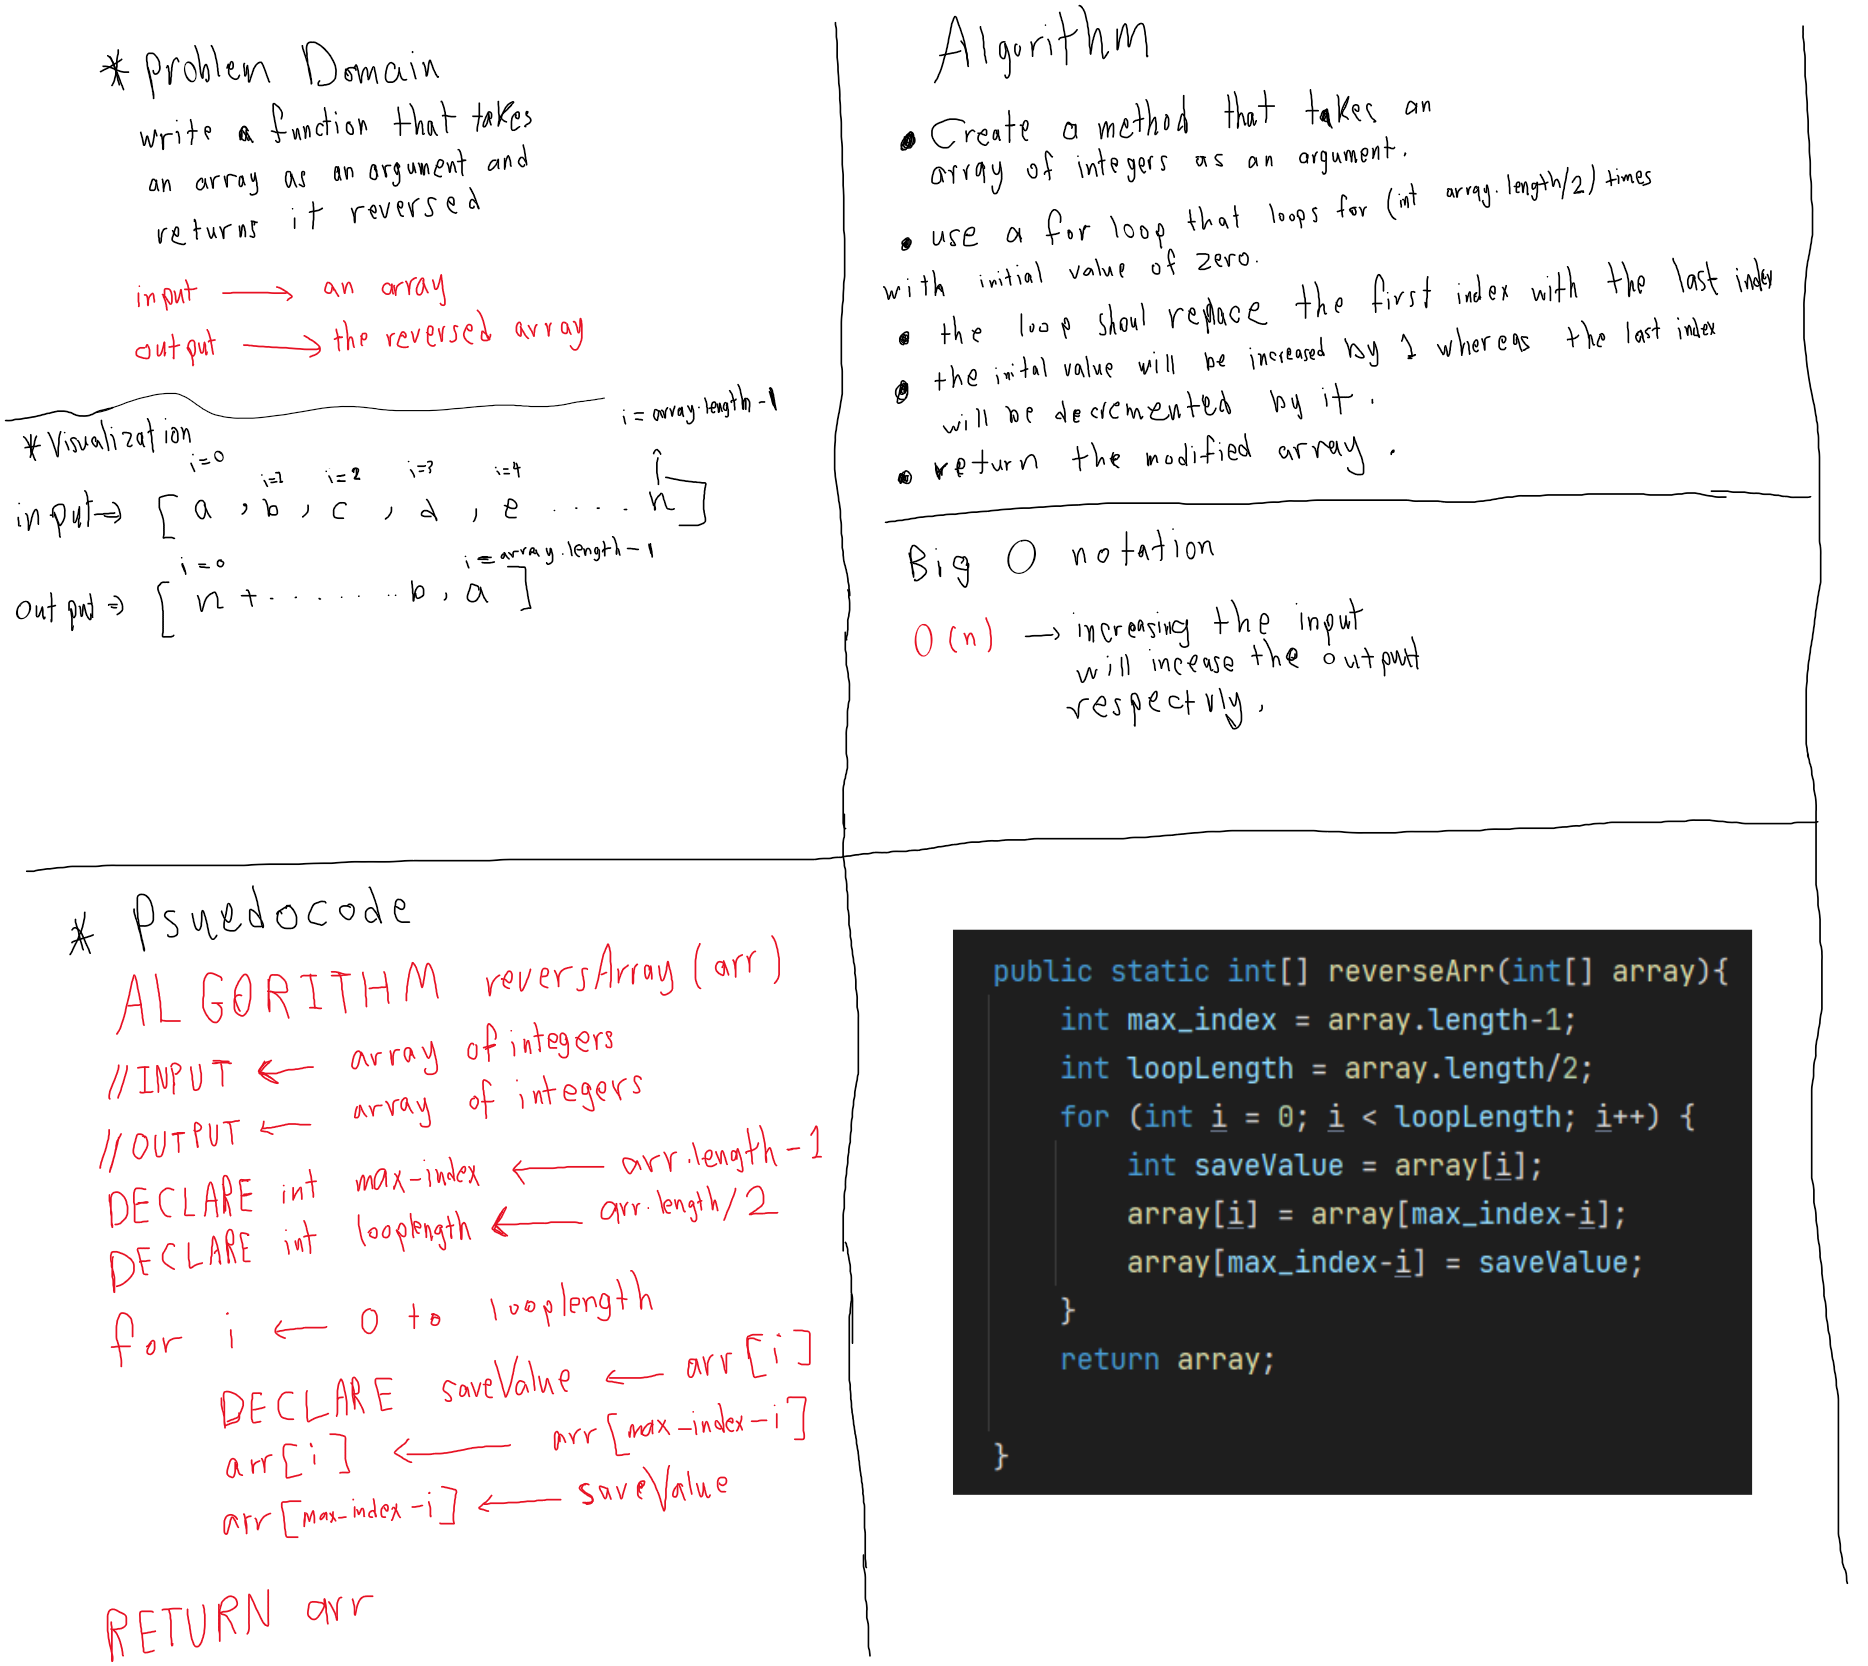 * Problem Domain
write a function that takes
an array as an argument and
returns it reversed
input → an array
output → the reversed array
* Visualization
i = array.length - 1
i=0 i=1 i=2 i=3 i=4
input ⇒ [ a , b , c , d , e . . . . n ]
i = 0 i = array.length - 1
output ⇒ [ n + . . . . . . . . b , a ]
Algorithm
• Create a method that takes an
array of integers as an argument.
• use a for loop that loops for (int array.length/2) times
with initial value of zero.
• the loop shoul replace the first index with the last index
• the inital value will be increased by 1 whereas the last index
will be decremented by it.
• return the modified array.
Big O notation
O(n) → increasing the input
will incease the output
respectvly.
* Psuedocode
ALGORITHM reversArray (arr)
//INPUT ← array of integers
//OUTPUT ← array of integers
DECLARE int max-index ← arr.length-1
DECLARE int looplength ← arr.length/2
for i ← 0 to looplength
DECLARE saveValue ← arr[i]
arr[i] ← arr[max-index-i]
arr[max-index-i] ← saveValue
RETURN arr
public static int[] reverseArr(int[] array){
int max_index = array.length-1;
int loopLength = array.length/2;
for (int i = 0; i < loopLength; i++) {
int saveValue = array[i];
array[i] = array[max_index-i];
array[max_index-i] = saveValue;
}
return array;
}